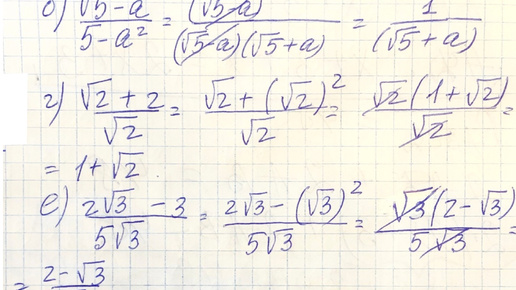 б) (√5-a)/(5-a²) = (√5-a)/((√5-a)(√5+a)) = 1/((√5+a))
г) (√2+2)/√2 = (√2+(√2)²)/√2 = (√2(1+√2))/√2 =
= 1+√2
е) (2√3-3)/(5√3) = (2√3-(√3)²)/(5√3) = (√3(2-√3))/(5√3) =
= 2-√3